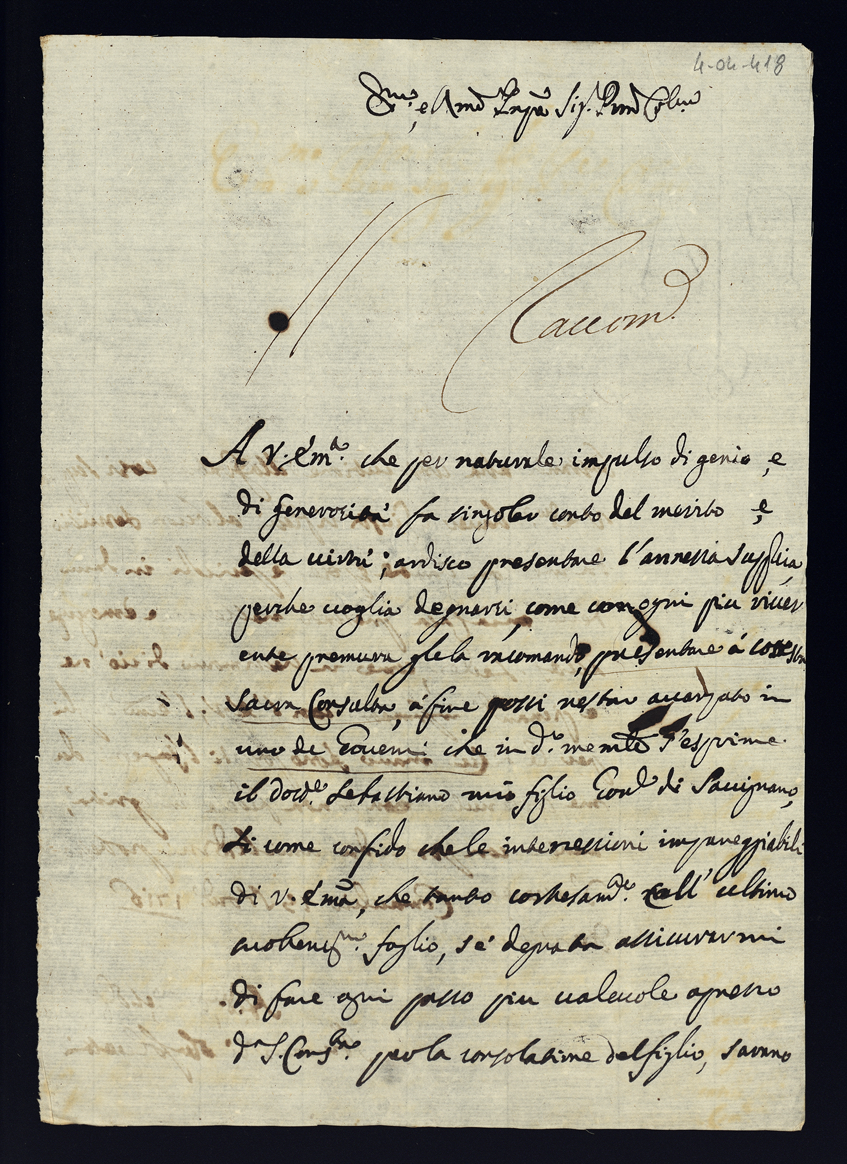 4-04-418
Em.mo e Rmo Sig. Pron Colmo
Raccomd.
A V. Em.a che per naturale impulso di genio, e
di generosità fa singolar conto del merito e
della virtù; ardisco presentare l'annessa supplica
perche voglia degnarsi, come con ogni piu river
ente premura glela racomando, presentare á cotesta
Sacra Consulta, á fine possi restar avanzato in
uno de Governi che in d.o memle s'esprime
il dott.e Sebastiano mio figlio Gov.e di Savignano,
Si come confido che le intercessioni impareggiabili
di V. Ema, che tanto cortesam.te nell' ultimo
foglio, s'é degnata assicurarmi
di fare ogni passo piu valevole apresso
d.a S. Cons.ta per la consolatione del figlio, sarano